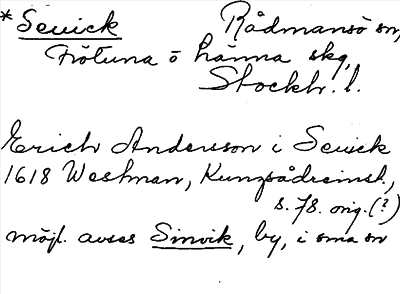 *Sevick Rådmansö sn,
Frötuna o Länna skg,
Stockh. l.
Erich Andersson i Sevick
1618 Westman, Kungsådreinst.,
s. 78. orig. (?)
möjl. avses Sinvik, by, i sma sn